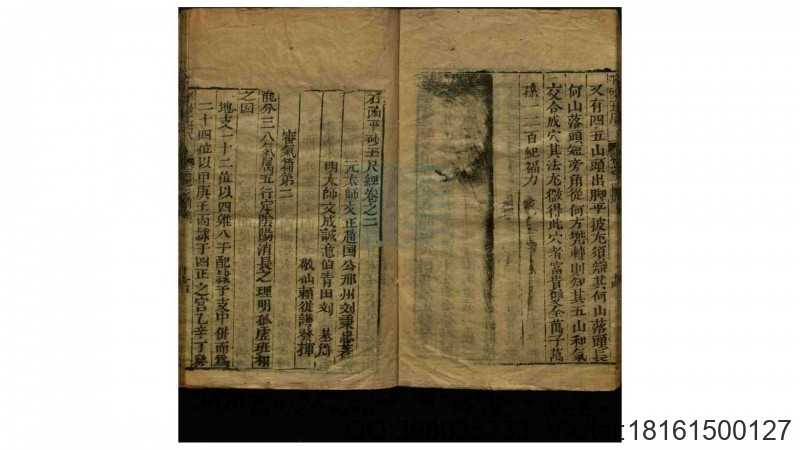 又有四五山頭出脚平披尤須辯其何山落頭長
何山落頭短旁角從何方兜轉則知其五山和氣
交合成穴其法尤微得此穴者富貴雙全萬子萬
孫一二百紀福力
石函平砂玉尺經卷之二
元太師文正趙国公邢州刘秉忠著
明太師文成誠意伯青田刘基觧
敬仙賴從謙發揮
審氣篇第二
龍分三八氣属五行定陰陽消長之理明孤虛班相
之因
地支一十二位以四維八干配隸于支中併而爲
二十四位以甲庚壬丙隷于四正之宫乙辛丁癸
18161500127